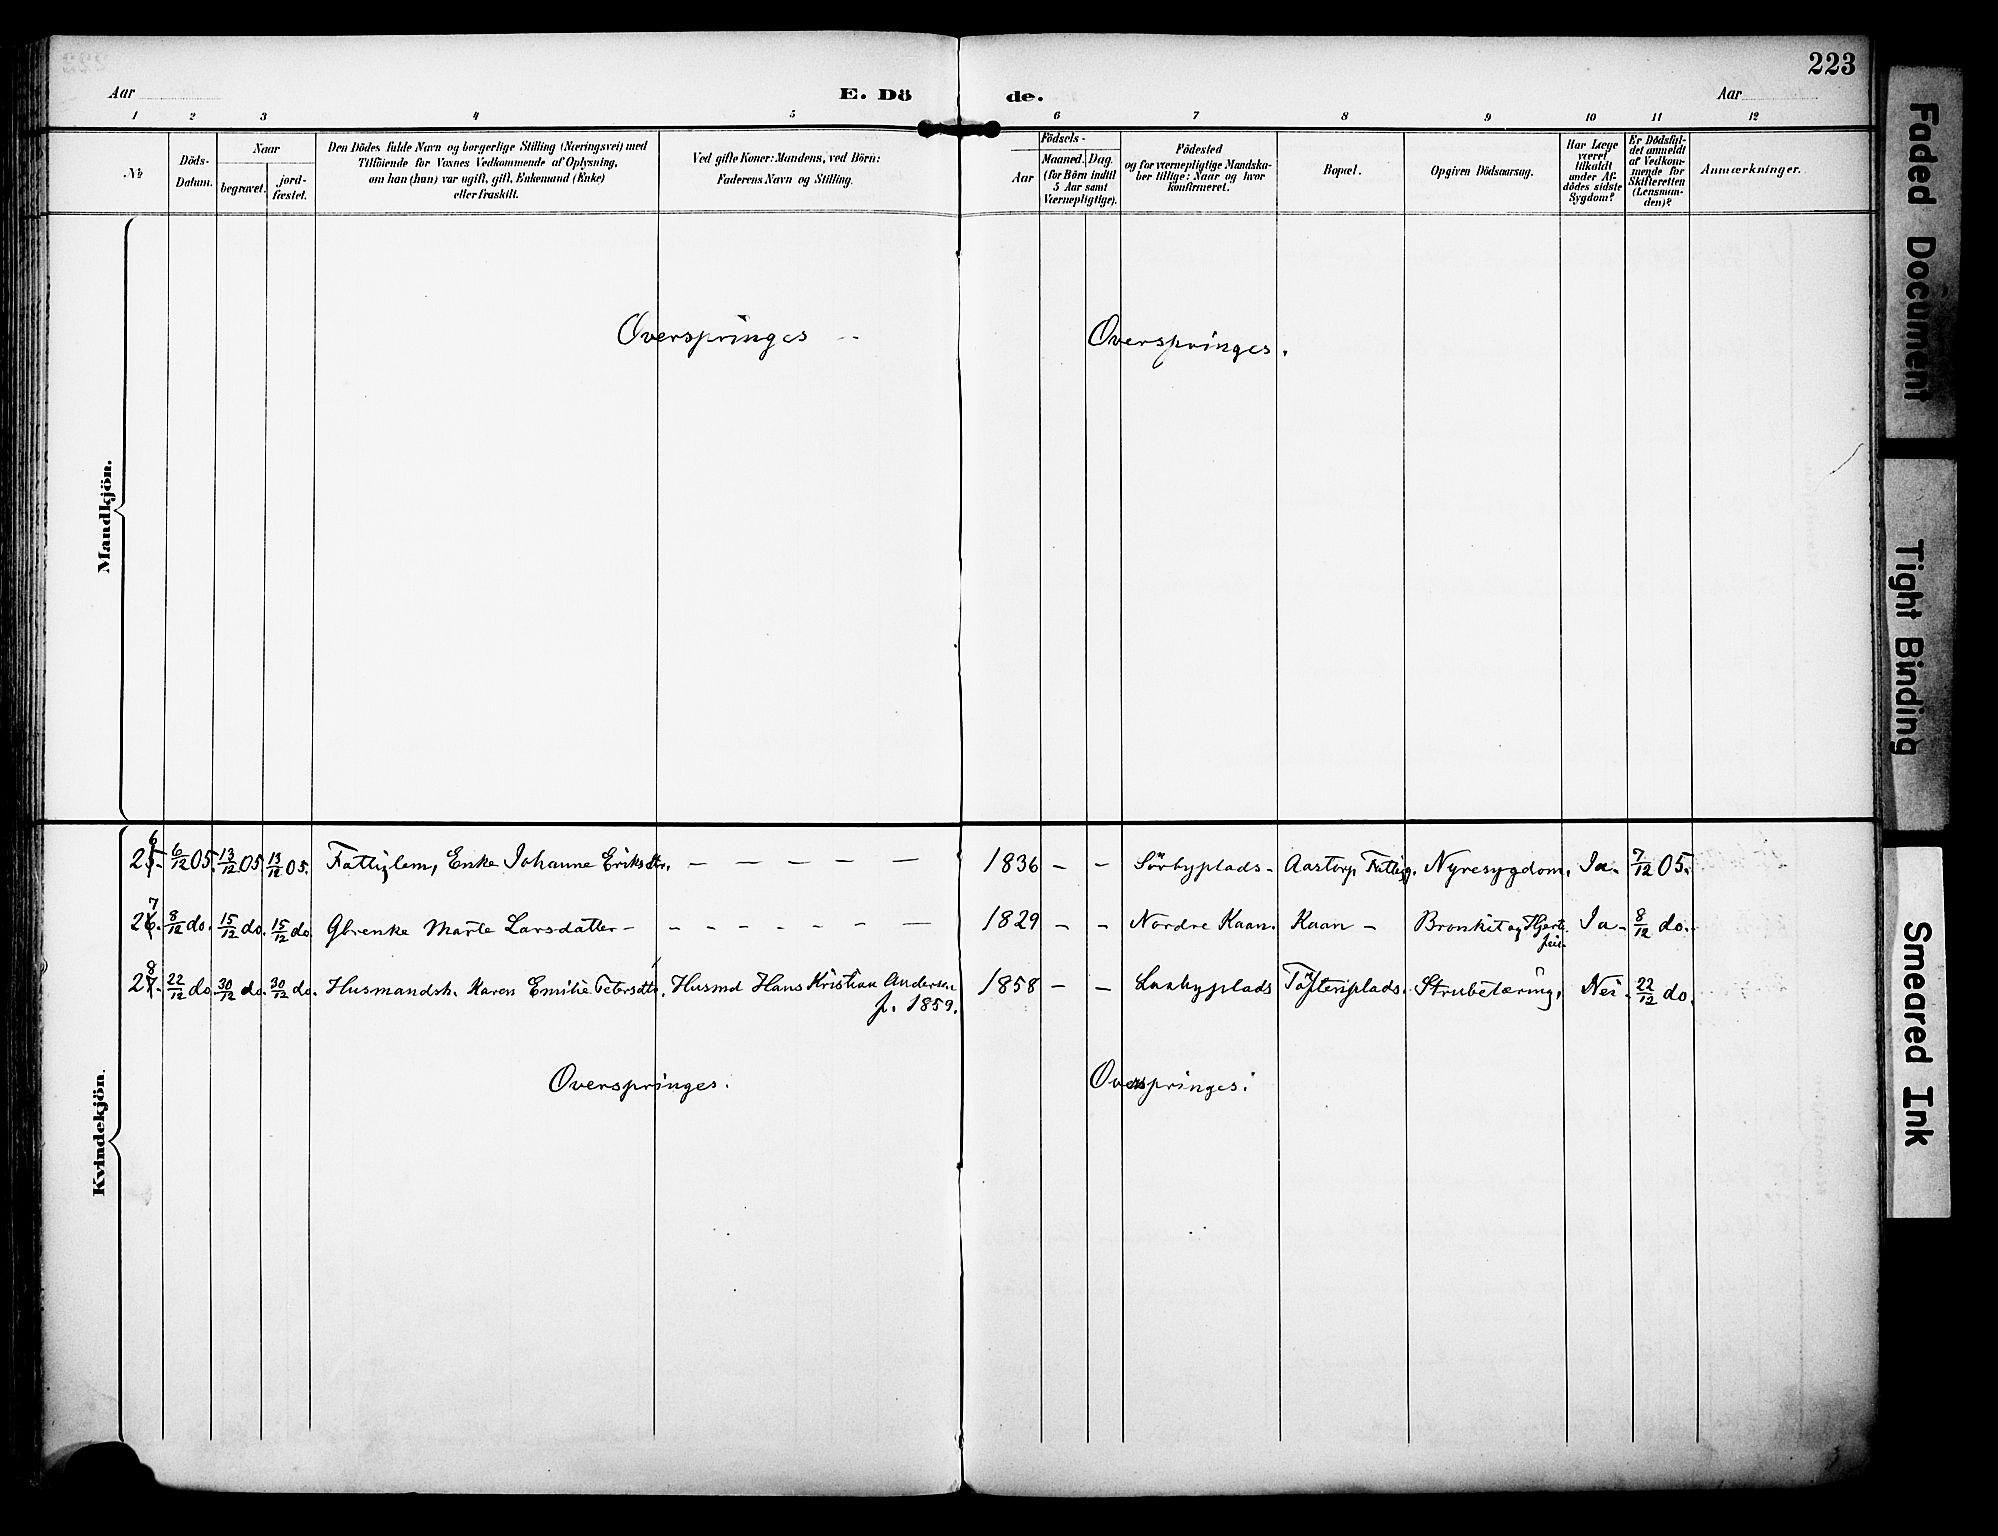 223
Aar E. Dö de. Aar
1 2 3 4 5 6 7 8 9 10 11 12
№
Döds-Datum.
Naar
begravet.
jord-fæstet.
Den Dödes fulde Navn og borgerlige Stilling (Næringsvei) med
Tilföiende for Voxnes Vedkommende af Oplysning,
om han (hun) var ugift, gift, Enkemand (Enke)
eller fraskilt.
Ved gifte Koner: Mandens, ved Börn:
Faderens Navn og Stilling.
Födsels-
Aar
Maaned. Dag.
(for Börn indtil
5 Aar samt
Værnepligtige).
Födested
og for værnepligtige Mandska-
ber tillige: Naar og hvor
konfirmeret.
Bopæl.
Opgiven Dödsaarsag.
Har Læge
været
tilkaldt
under Af-
dödes sidste
Sygdom?
Er Dödsfal-
det anmeldt
af Vedkom-
mende for
Skifteretten
(Lensman-
den)?
Anmærkninger.
Mandkjön.
Overspringes Overspringes.
Kvindekjön.
26 6/12 05. 13/12 05 13/12 05. Fattiglem, Enke Johanne Eriksdtr. — — — — — 1836 — — Sörbyplads - Aastorp Fattigg. Nyresygdom. Ja. 7/12 05.
27 8/12 do. 15/12 do. 15/12 do. Gbrenke Marte Larsdatter — - - - - - — 1829 — — Nordre Kaan. Kaan — Bronkit og Hjerte
feil. Ja - 8/12 do.
28 22/12 do. 30/12 do. 30/12 do. Husmandsk. Karen Emilie Petersdtr. Husmd Hans Kristian Andersen
f. 1859. 1858 — — Lundbyplads Töftenplads. Strubetæring. Nei. 22/12 do.
Overspringes. Overspringes.
Faded Document
Tight Binding
Smeared Ink